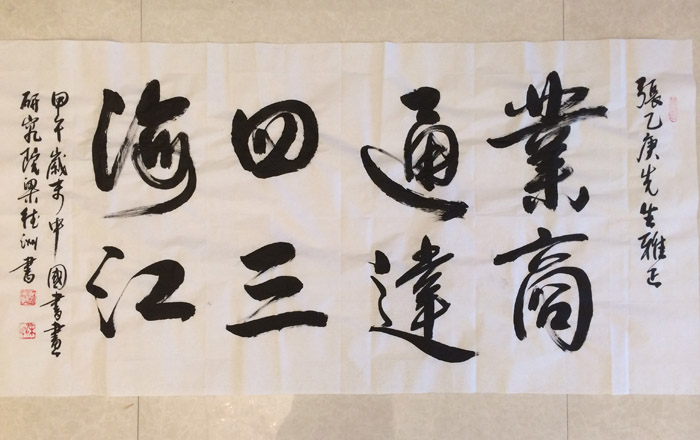 張乙庚先生雅正
業商
通達
四三
海江
甲午歲末中國書畫
研究院梁桂洲書